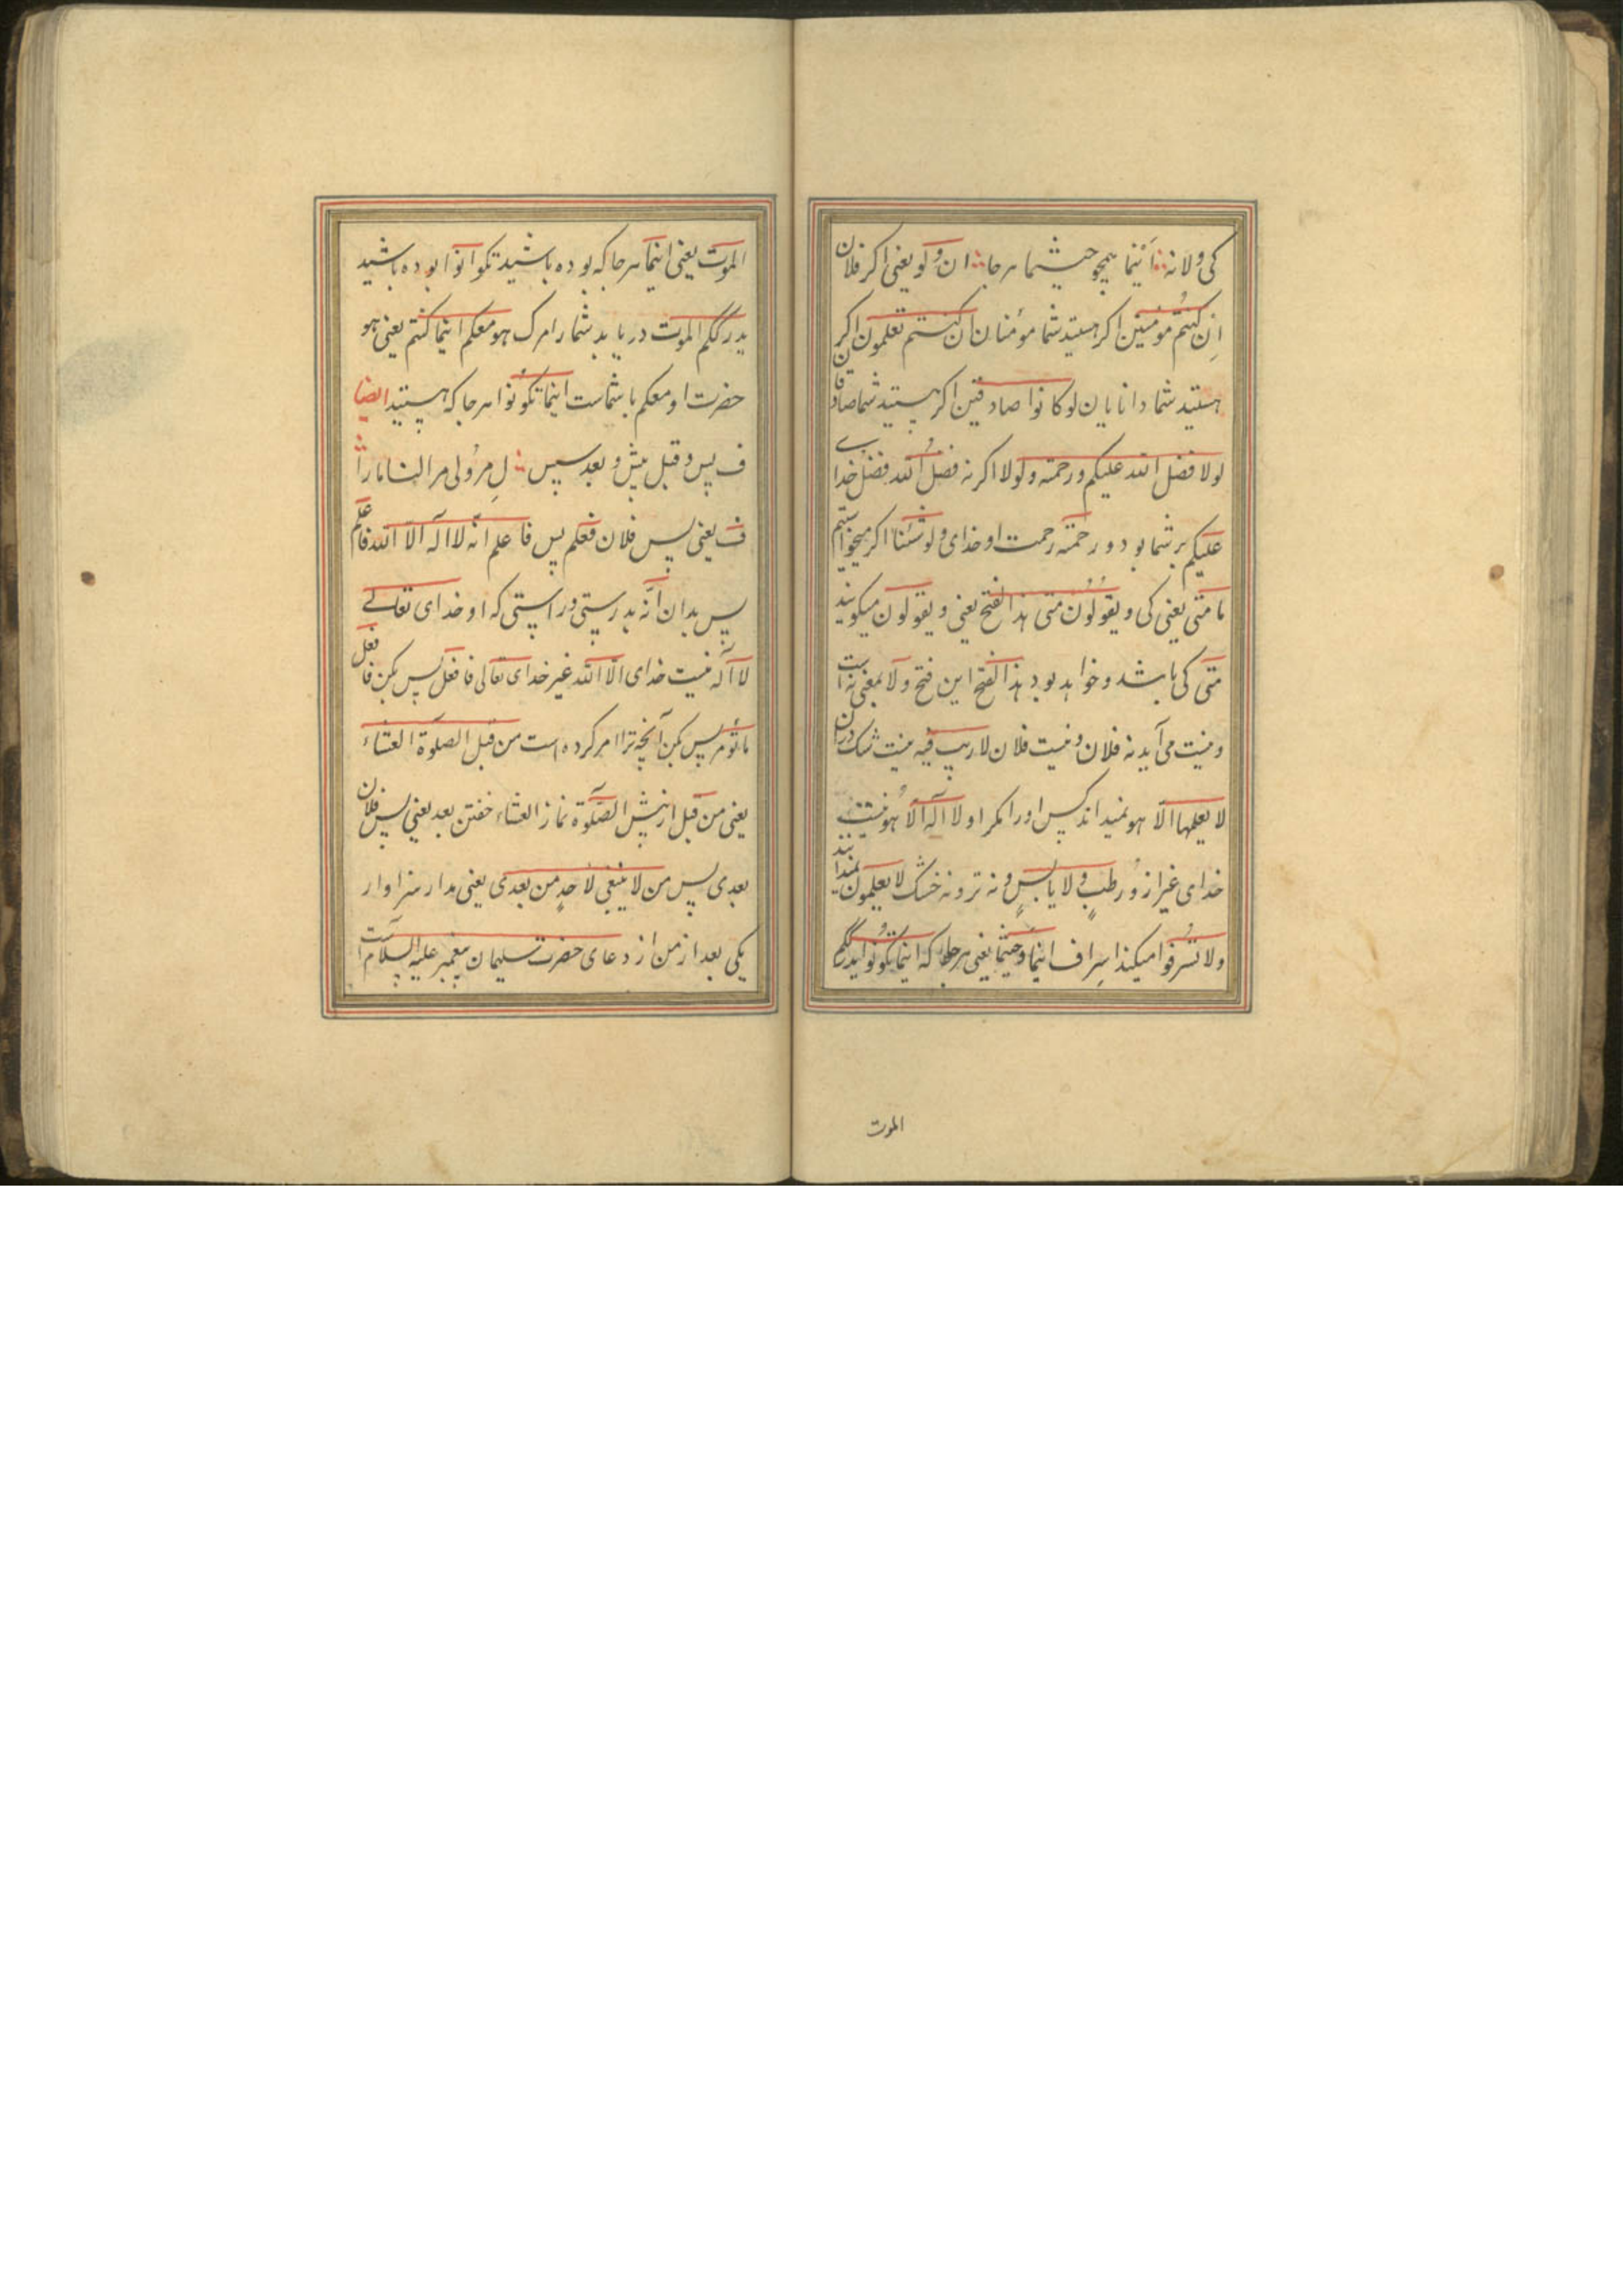 کی ولا نه اَینما همچو حیثما هر جا ان و لو یعنی اکر فلان
اِن کنتُم مؤمنین اکر هستید شما مؤمنان ان کنتم تعلمون اکر
هستید شما دانایان لو کانوا صادقین اکر هستید شما صادقان
لولا فضل الله علیکم و رحمته و لولا اکر نه فضلُ الله فضل خدای
علیکم بر شما بود و رحمته رحمت او خدای و لو شئنا اکر میخواستیم
ما متی یعنی کی و یقولُون متی هذا الفتح یعنی و یقولون میکویند
متی کی باشد و خواهد بود هذا الفتح این فتح و لا بمعنی نه است
و نیست می آید نه فلان و نیست فلان لا ریب فیه نیست شک در ان
لا یعلمها الّا هو نمیداند کس اورا مکر او لا آله الّا هُو نیست
خدای غیر از و رطبٍ ولا یابسٍ و نه تر و نه خشک لا یعلمون نمیدانند
ولا تُسرفوا میکنذ اسِراف اینما و حیثما یعنی هر جا که اینما تکونُوا یدرککم
الموت
الموت یعنی اینما هر جا که بوده باشید تکوانوا بوده باشید
یدرککم الموت دریابد شمارا مرک هو معکم اینما کنتم یعنی هو
حضرت او معکم با شماست اینما تکونُوا هر جا که هستید ایضا
ف پس و قبل پیش و بعد سپس لِ مر وُلی مرا لنا مارا
ف یعنی پس فلان فعکم پس فاعلم انّه لا اله الّا الله فاعلم
پس بدان انّه بدرستی و راستی که او خدای تعالے
لا آله نیست خدای الّا الله غیر خدای تعالی فافعل پس بکن فافعل
ما تؤمر پس بکن آنچه ترا امر کرده است من قبل الصلوة العشاء
یعنی من قبل از پیش الصّلوة نماز العشاء خفتن بعد یعنی پس فلان
بعدی پس من لا ینبغی لاحدٍ من بعدی یعنی مدار سزاوار
یکی بعد از من از دعای حضرت سلیمان پیغمبر علیه السلام است